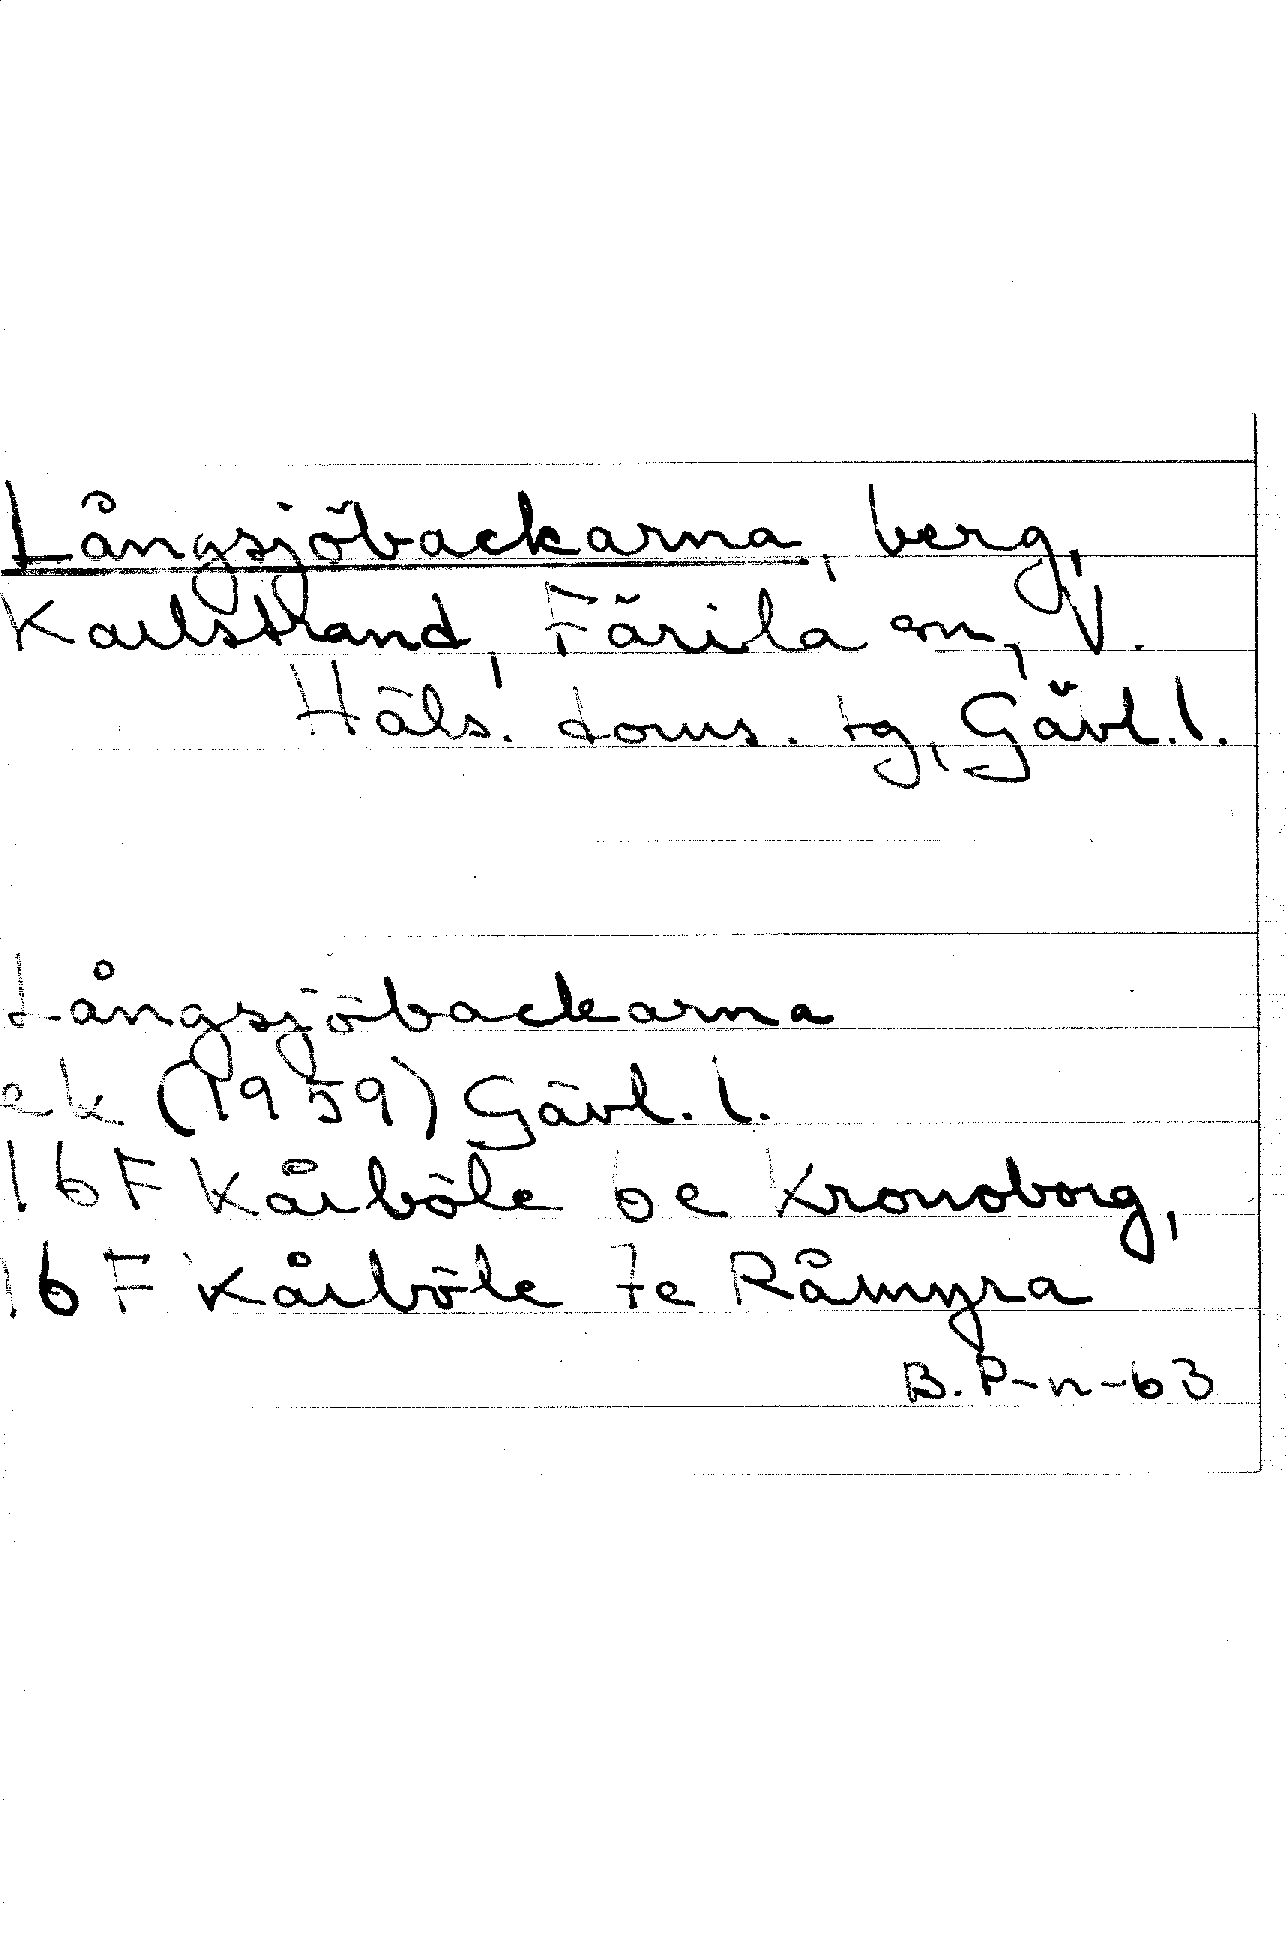 Långsjöbackarna, berg,
Karlstrand, Färila sn, V.
Häls. doms. tg, Gävl. l.
Långsjöbackarna
ek (1959) Gävl. l.
16F Kårböle 6e Kronoborg,
16F Kårböle 7e Råmyra
B. P-n-63